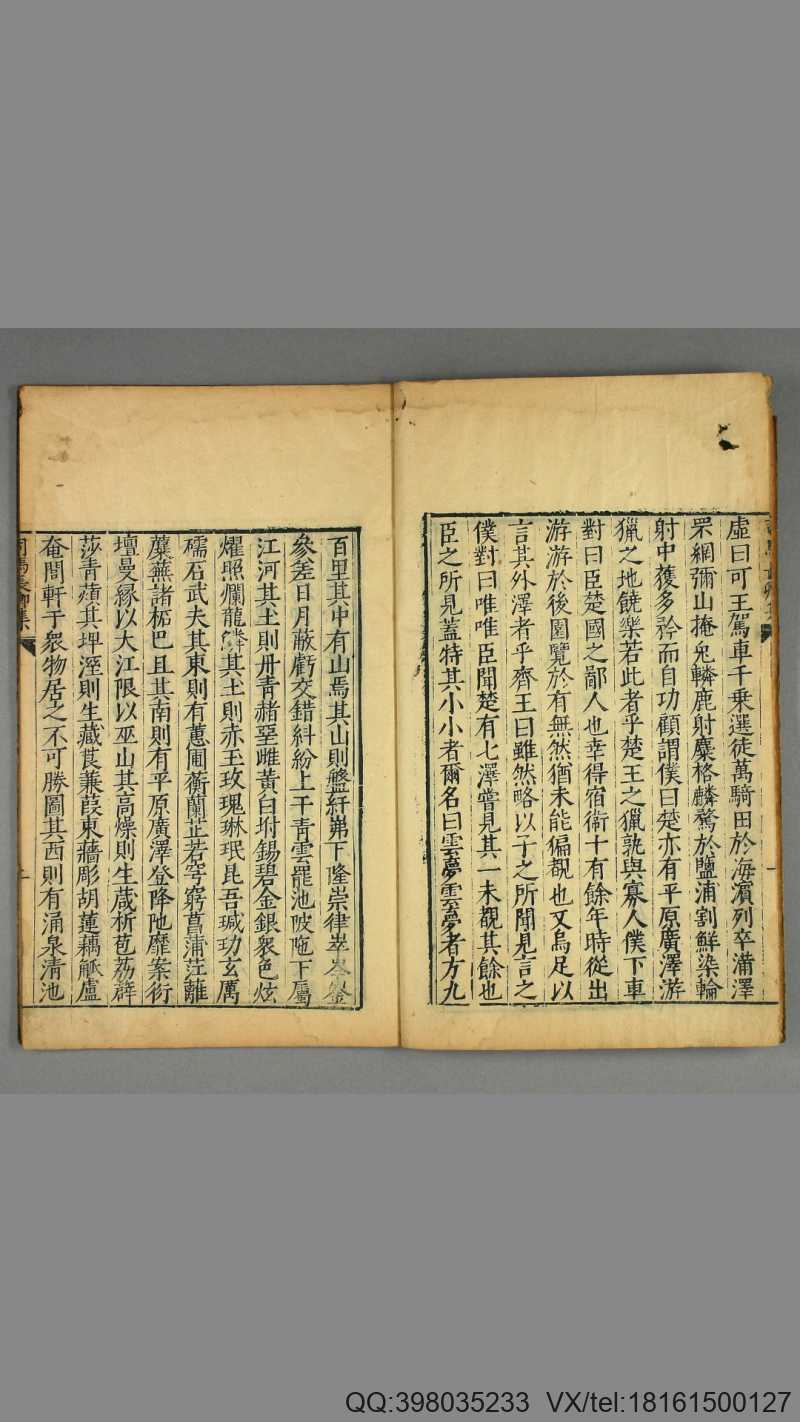 虛曰可王駕車千乗選徒萬騎田於海濱列卒滿澤
罘網彌山掩兔轔鹿射麋格麟騖於鹽浦割鮮染輪
射中獲多矜而自功顧謂僕曰楚亦有平原廣澤游
獵之地饒樂若此者乎楚王之獵孰與寡人僕下車
對曰臣楚國之鄙人也幸得宿衛十有餘年時從出
游游於後園覽於有無然猶未能徧覩也又烏足以
言其外澤者乎齊王曰雖然略以子之所聞見言之
僕對曰唯唯臣聞楚有七澤嘗見其一未覩其餘也
臣之所見蓋特其小小者爾名曰雲夢雲夢者方九
百里其中有山焉其山則盤紆岪下隆崇律崒岑崟
參差日月蔽虧交錯糾紛上干青雲罷池陂陁下屬
江河其土則丹青赭堊雌黄白坿錫碧金銀衆色炫
燿照爛龍鱗其土則赤玉玫瑰琳珉昆吾瑊玏玄厲
碝石武夫其東則有蕙圃蘅蘭芷若穹窮菖蒲茳蘺
蘪蕪諸柘巴且其南則有平原廣澤登降阤靡案衍
壇曼緣以大江限以巫山其高燥則生葴析苞荔薜
莎青薠其埤溼則生藏莨蒹葭東蘠彫胡蓮藕觚盧
奄閭軒于衆物居之不可勝圖其西則有涌泉清池
司馬長卿集
QQ:398035233 VX/tel:18161500127